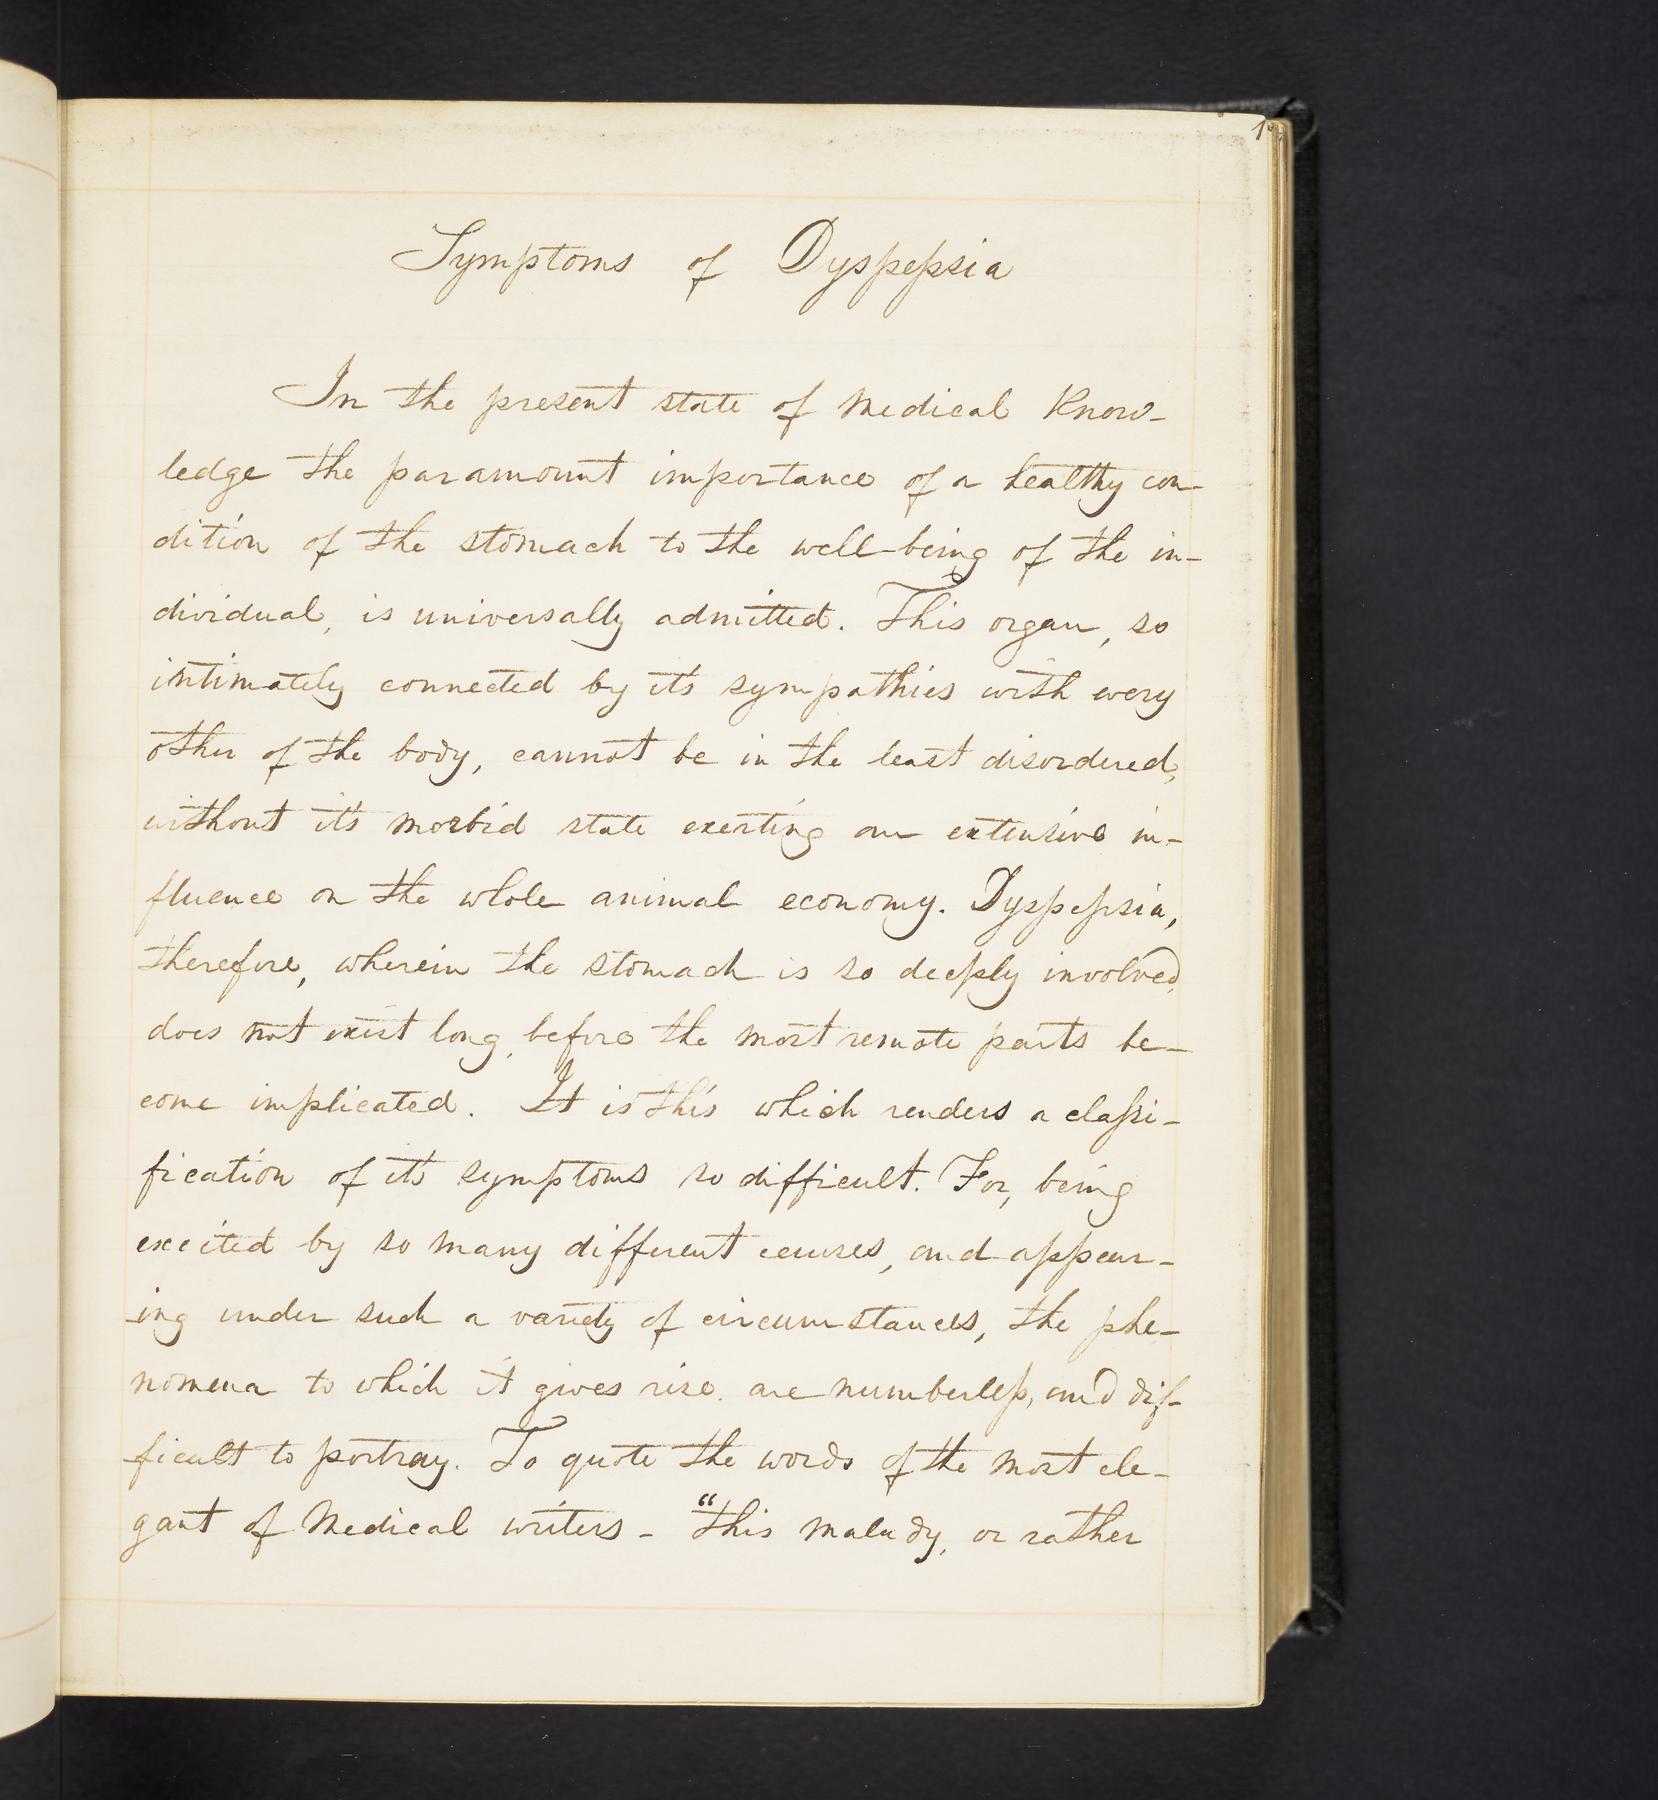 1
Symptoms of Dyspepsia
In the present state of Medical Know-
ledge the paramount importance of a healthy con-
dition of the stomach to the well-being of the in-
dividual, is universally admitted. This organ, so
intimately connected by it's sympathies with every
other of the body, cannot be in the least disordered,
without it's morbid state exerting an extensive in-
fluence on the whole animal economy. Dyspepsia,
therefore, wherein the stomach is so deeply involved,
does not exist long, before the most remote parts be-
come implicated. It is this which renders a classi-
fication of it's symptoms so difficult. For, being
excited by so many different causes, and appear-
ing under such a variety of circumstances, the phe-
nomena to which it gives rise, are numberless, and dif-
ficult to portray. To quote the words of the most ele-
gant of Medical writers - "this malady, or rather